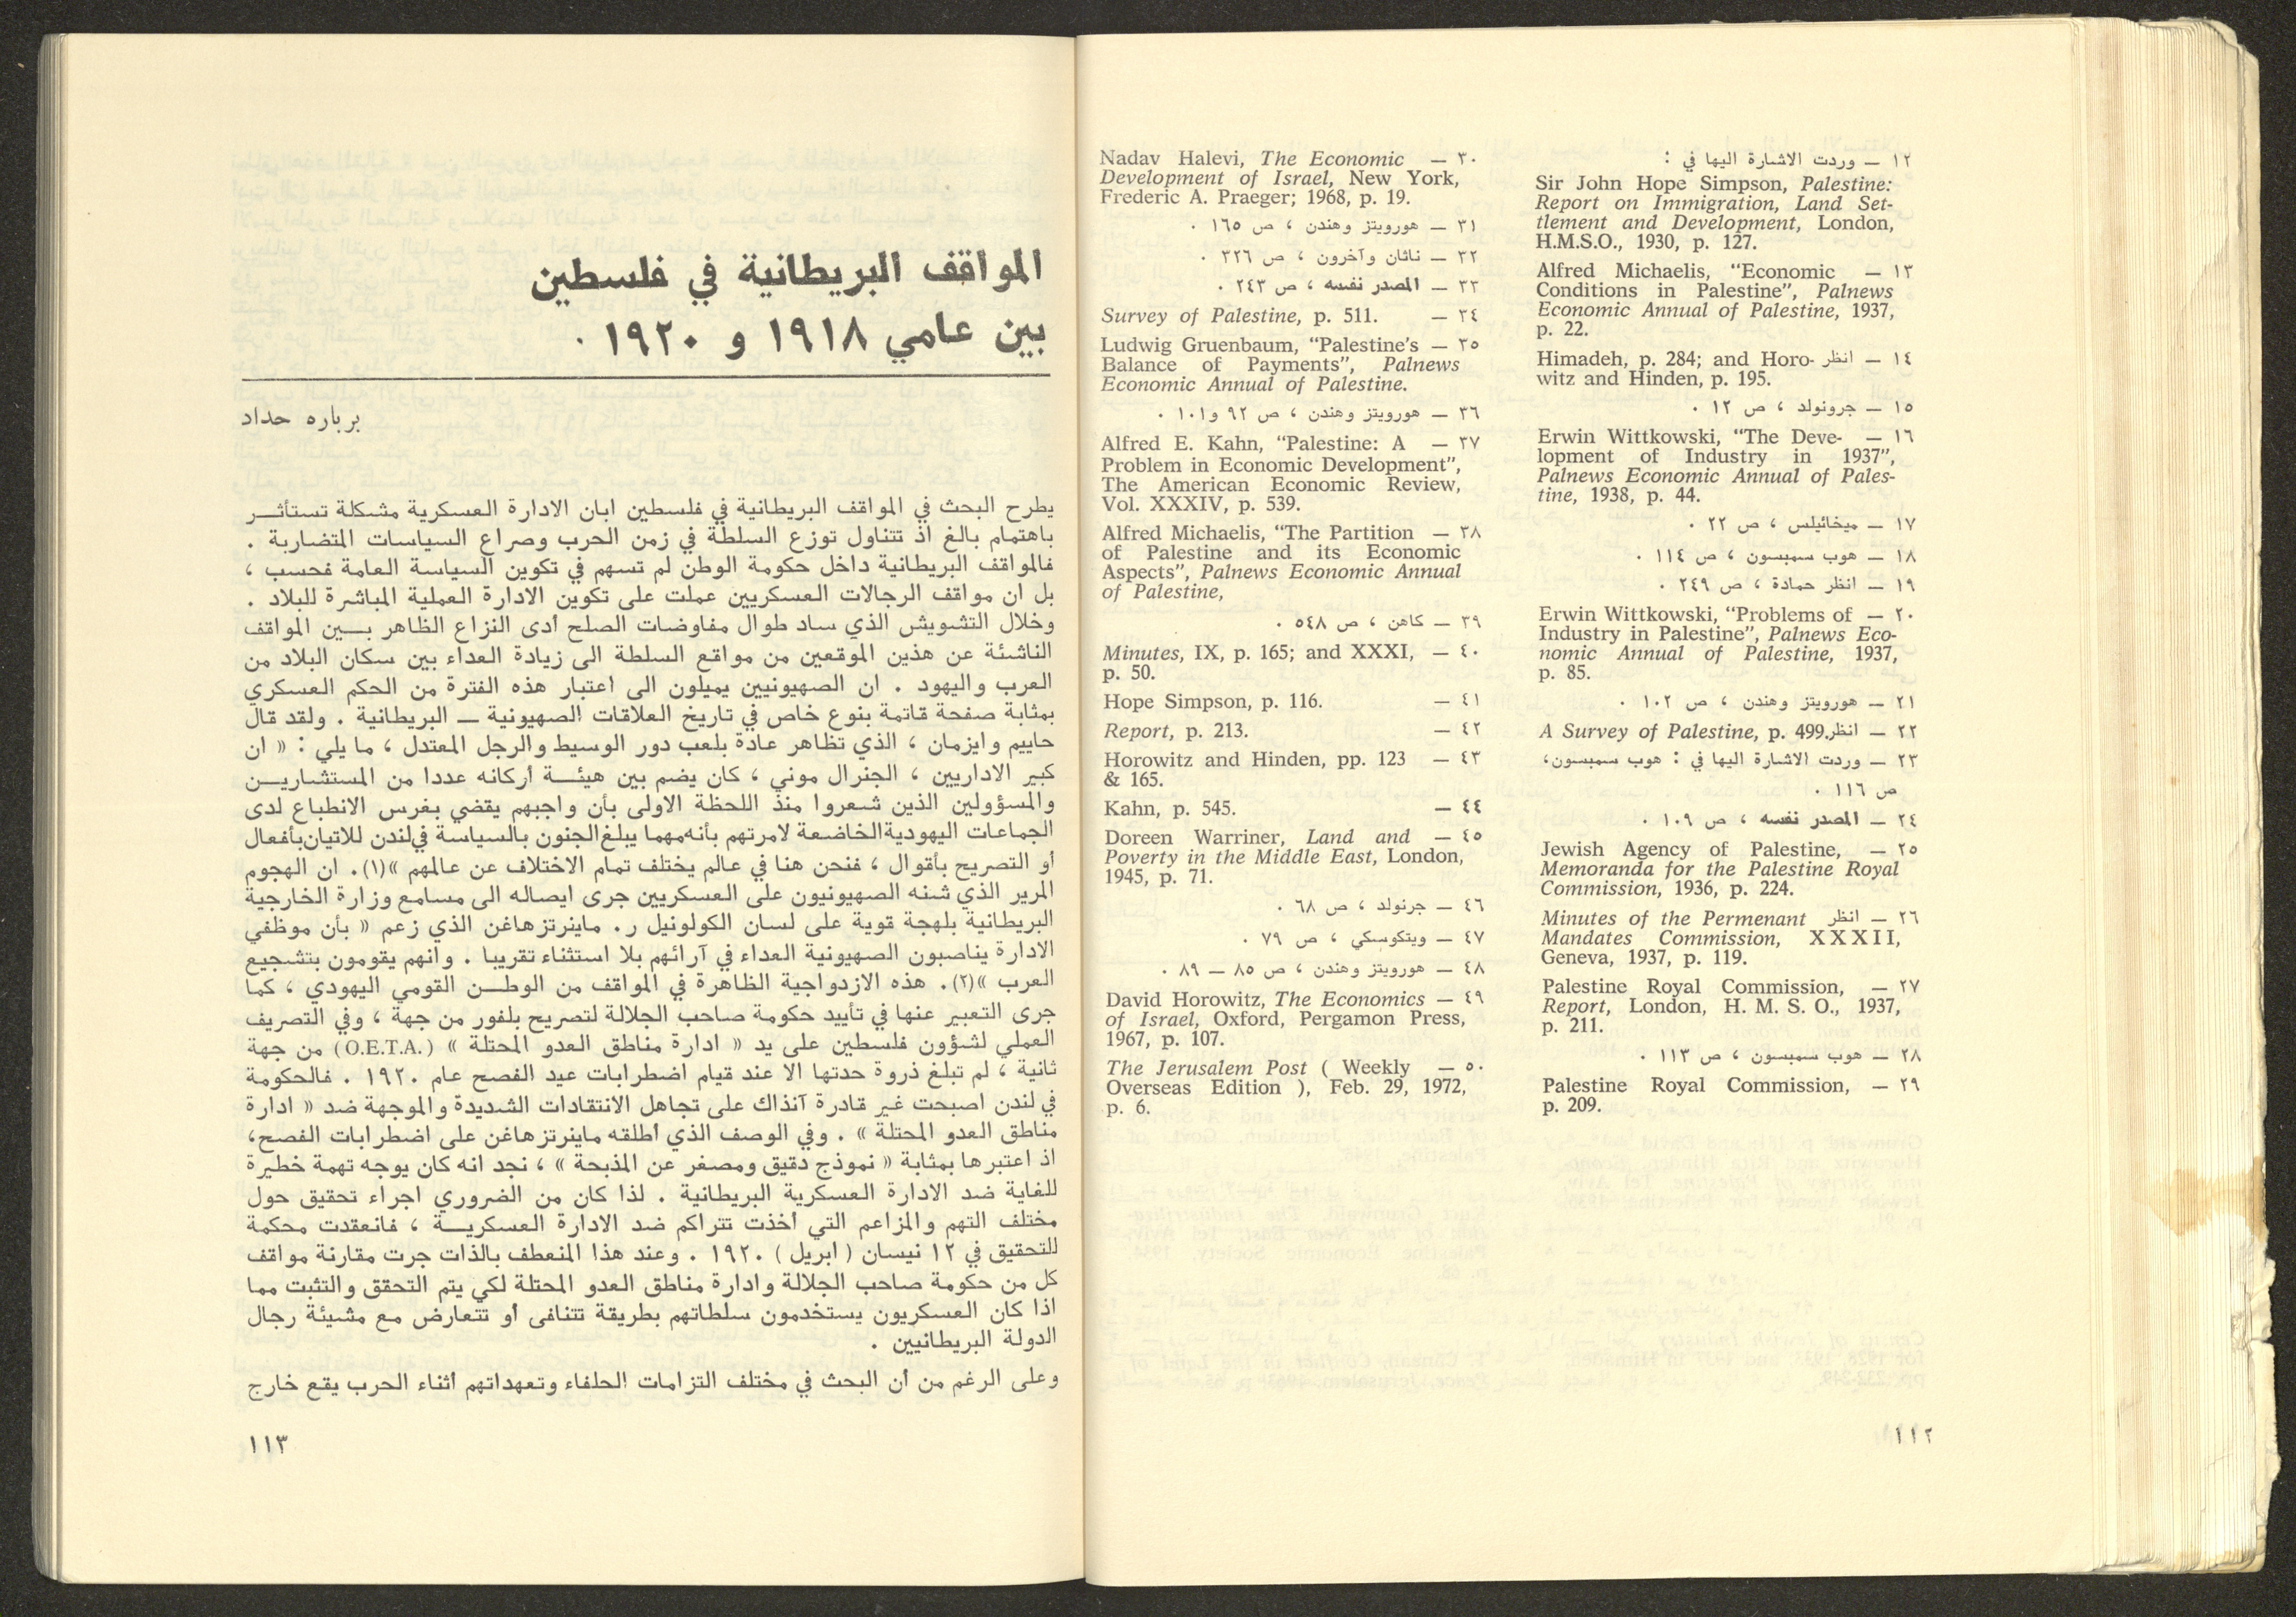 ١٢ — وردت الاشارة اليها في :
Sir John Hope Simpson, Palestine:
Report on Immigration, Land Set-
tlement and Development, London,
H.M.S.O., 1930, p. 127.
Alfred Michaelis, “Economic — ١٣
Conditions in Palestine”, Palnews
Economic Annual of Palestine, 1937,
p. 22.
Himadeh, p. 284; and Horo- انظر — ١٤
witz and Hinden, p. 195.
١٥ — جرونولد ، ص ١٢ .
Erwin Wittkowski, “The Deve- — ١٦
lopment of Industry in 1937”,
Palnews Economic Annual of Pales-
tine, 1938, p. 44.
١٧ — ميخائيلس ، ص ٢٢ .
١٨ — هوب سمبسون ، ص ١١٤ .
١٩ — انظر حمادة ، ص ٢٤٩ .
Erwin Wittkowski, “Problems of — ٢٠
Industry in Palestine”, Palnews Eco-
nomic Annual of Palestine, 1937,
p. 85.
٢١ — هورويتز وهندن ، ص ١٠٢ .
A Survey of Palestine, p. 499. انظر — ٢٢
٢٣ — وردت الاشارة اليها في : هوب سمبسون،
ص ١١٦ .
٢٤ — المصدر نفسه ، ص ١٠٩ .
Jewish Agency of Palestine, — ٢٥
Memoranda for the Palestine Royal
Commission, 1936, p. 224.
Minutes of the Permenant انظر — ٢٦
Mandates Commission, XXXII,
Geneva, 1937, p. 119.
Palestine Royal Commission, — ٢٧
Report, London, H. M. S. O., 1937,
p. 211.
٢٨ — هوب سمبسون ، ص ١١٣ .
Palestine Royal Commission, — ٢٩
p. 209.
Nadav Halevi, The Economic — ٣٠
Development of Israel, New York,
Frederic A. Praeger; 1968, p. 19.
٣١ — هورويتز وهندن ، ص ١٦٥ .
٣٢ — ناثان وآخرون ، ص ٣٢٦ .
٣٣ — المصدر نفسه ، ص ٢٤٣ .
Survey of Palestine, p. 511. — ٣٤
Ludwig Gruenbaum, “Palestine’s — ٣٥
Balance of Payments”, Palnews
Economic Annual of Palestine.
٣٦ — هورويتز وهندن ، ص ٩٢ و١٠١ .
Alfred E. Kahn, “Palestine: A — ٣٧
Problem in Economic Development”,
The American Economic Review,
Vol. XXXIV, p. 539.
Alfred Michaelis, “The Partition — ٣٨
of Palestine and its Economic
Aspects”, Palnews Economic Annual
of Palestine,
٣٩ — كاهن ، ص ٥٤٨ .
Minutes, IX, p. 165; and XXXI, — ٤٠
p. 50.
Hope Simpson, p. 116. — ٤١
Report, p. 213. — ٤٢
Horowitz and Hinden, pp. 123 — ٤٣
& 165.
Kahn, p. 545. — ٤٤
Doreen Warriner, Land and — ٤٥
Poverty in the Middle East, London,
1945, p. 71.
٤٦ — جرنولد ، ص ٦٨ .
٤٧ — ويتكوسكي ، ص ٧٩ .
٤٨ — هورويتز وهندن ، ص ٨٥ — ٨٩ .
David Horowitz, The Economics — ٤٩
of Israel, Oxford, Pergamon Press,
1967, p. 107.
The Jerusalem Post ( Weekly — ٥٠
Overseas Edition ), Feb. 29, 1972,
p. 6.
١١٢
المواقف البريطانية في فلسطين
بين عامي ١٩١٨ و ١٩٢٠ .
برباره حداد
يطرح البحث في المواقف البريطانية في فلسطين ابان الادارة العسكرية مشكلة تستأثـــر
باهتمام بالغ اذ تتناول توزع السلطة في زمن الحرب وصراع السياسات المتضاربة .
فالمواقف البريطانية داخل حكومة الوطن لم تسهم في تكوين السياسة العامة فحسب ،
بل ان مواقف الرجالات العسكريين عملت على تكوين الادارة العملية المباشرة للبلاد .
وخلال التشويش الذي ساد طوال مفاوضات الصلح أدى النزاع الظاهر بـــين المواقف
الناشئة عن هذين الموقعين من مواقع السلطة الى زيادة العداء بين سكان البلاد من
العرب واليهود . ان الصهيونيين يميلون الى اعتبار هذه الفترة من الحكم العسكري
بمثابة صفحة قاتمة بنوع خاص في تاريخ العلاقات الصهيونية — البريطانية . ولقد قال
حاييم وايزمان ، الذي تظاهر عادة بلعب دور الوسيط والرجل المعتدل ، ما يلي : « ان
كبير الاداريين ، الجنرال موني ، كان يضم بين هيئـــة أركانه عددا من المستشاريـــن
والمسؤولين الذين شعروا منذ اللحظة الاولى بأن واجبهم يقضي بغرس الانطباع لدى
الجماعات اليهودية الخاضعة لامرتهم بأنه مهما يبلغ الجنون بالسياسة في لندن للاتيان بأفعال
أو التصريح بأقوال ، فنحن هنا في عالم يختلف تمام الاختلاف عن عالمهم »(١). ان الهجوم
المرير الذي شنه الصهيونيون على العسكريين جرى ايصاله الى مسامع وزارة الخارجية
البريطانية بلهجة قوية على لسان الكولونيل ر. ماينرتزهاغن الذي زعم « بأن موظفي
الادارة يناصبون الصهيونية العداء في آرائهم بلا استثناء تقريبا . وانهم يقومون بتشجيع
العرب »(٢). هذه الازدواجية الظاهرة في المواقف من الوطـــن القومي اليهودي ، كما
جرى التعبير عنها في تأييد حكومة صاحب الجلالة لتصريح بلفور من جهة ، وفي التصريف
العملي لشؤون فلسطين على يد « ادارة مناطق العدو المحتلة » (O.E.T.A.) من جهة
ثانية ، لم تبلغ ذروة حدتها الا عند قيام اضطرابات عيد الفصح عام ١٩٢٠ . فالحكومة
في لندن اصبحت غير قادرة آنذاك على تجاهل الانتقادات الشديدة والموجهة ضد « ادارة
مناطق العدو المحتلة » . وفي الوصف الذي أطلقه ماينرتزهاغن على اضطرابات الفصح،
اذ اعتبرها بمثابة « نموذج دقيق ومصغر عن المذبحة » ، نجد انه كان يوجه تهمة خطيرة
للغاية ضد الادارة العسكرية البريطانية . لذا كان من الضروري اجراء تحقيق حول
مختلف التهم والمزاعم التي أخذت تتراكم ضد الادارة العسكريـــة ، فانعقدت محكمة
للتحقيق في ١٢ نيسان ( ابريل ) ١٩٢٠ . وعند هذا المنعطف بالذات جرت مقارنة مواقف
كل من حكومة صاحب الجلالة وادارة مناطق العدو المحتلة لكي يتم التحقق والتثبت مما
اذا كان العسكريون يستخدمون سلطاتهم بطريقة تتنافى أو تتعارض مع مشيئة رجال
الدولة البريطانيين .
وعلى الرغم من أن البحث في مختلف التزامات الحلفاء وتعهداتهم أثناء الحرب يقع خارج
١١٣